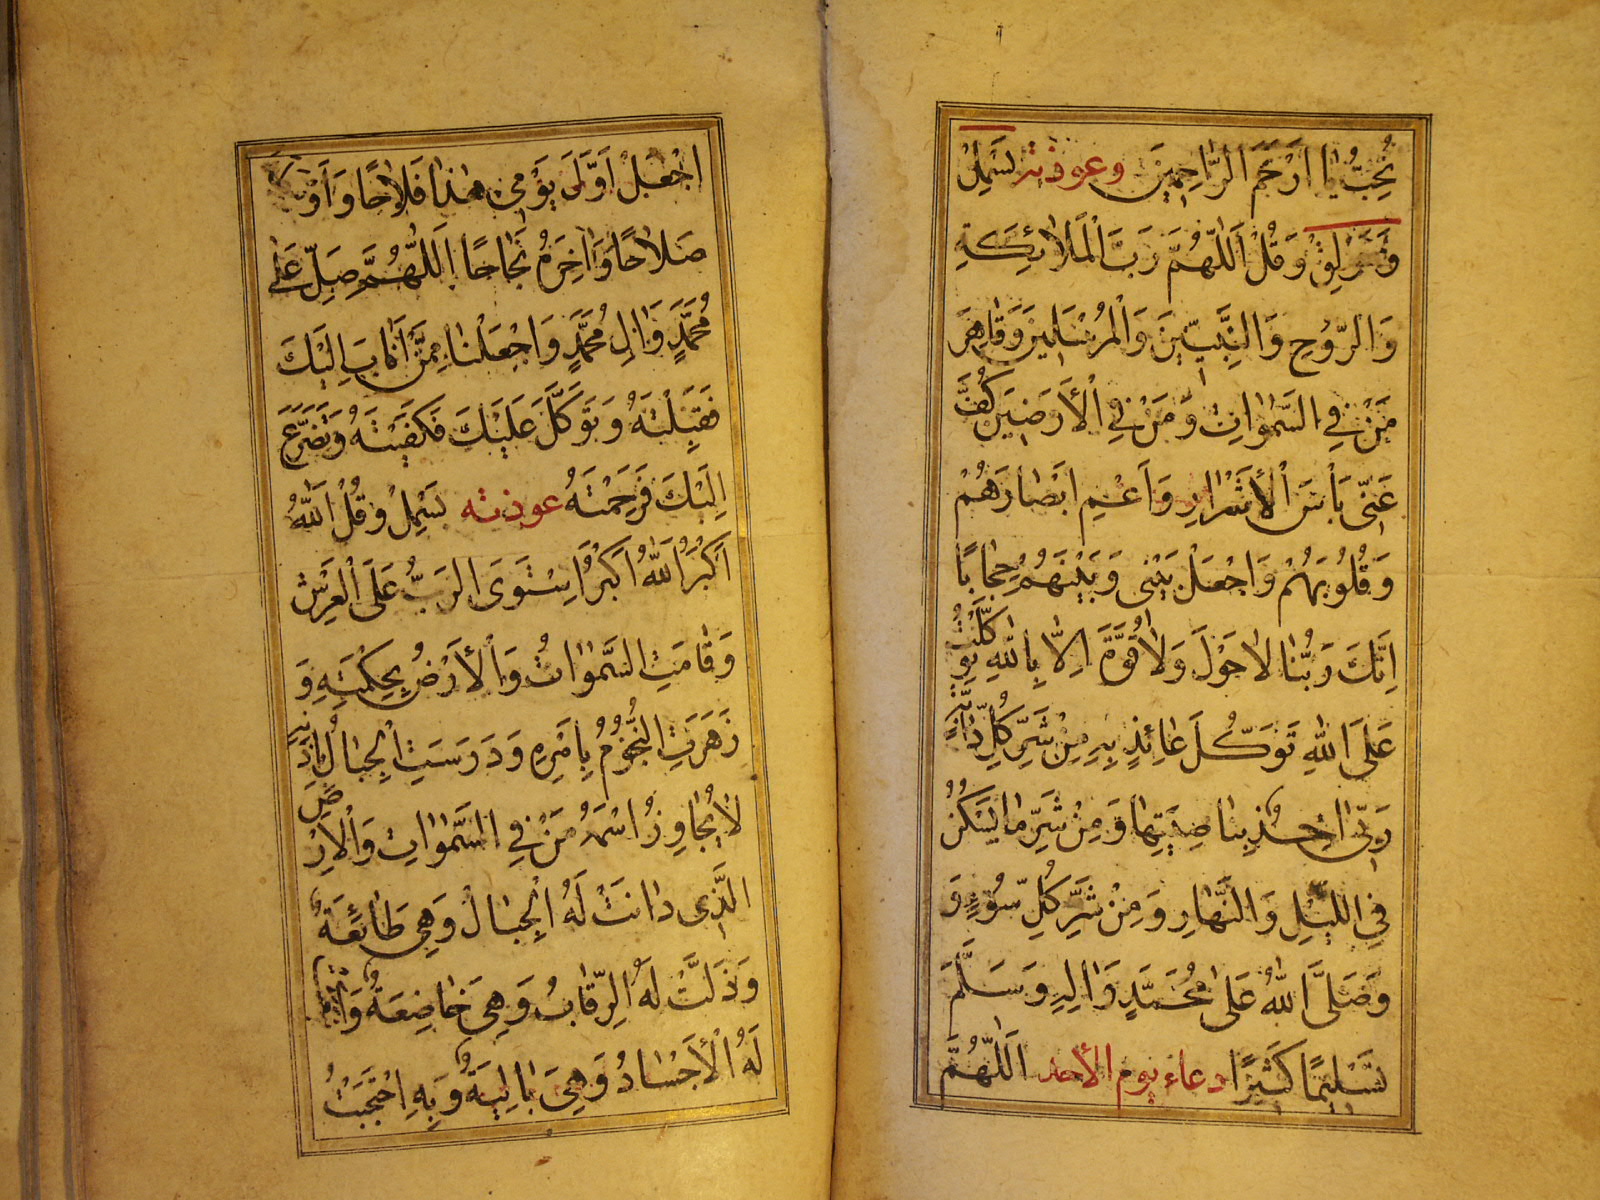 تُحِبُّ يَا اَرْحَمَ الرَّاحِمِينَ وعوذته بَسْمِلْ
وَحَوْلِقْ وَقُلْ اَللّٰهُمَّ رَبَّ الْمَلَائِكَةِ
وَالرُّوحِ وَالنَّبِيّٖينَ وَالْمُرْسَلِينَ وَقَاهِرَ
مَنْ فِي السَّمٰوَاتِ وَمَنْ فِي الْأَرَضِينَ كُفَّ
عَنّٖى بَأْسَ الْأَشْرَارِ وَاَعْمِ اَبْصَارَهُمْ
وَقُلُوبَهُمْ وَاجْعَلْ بَيْنٖى وَبَيْنَهُمْ حِجَابًا
اِنَّكَ رَبُّنَا لَا حَوْلَ وَلَا قُوَّةَ اِلَّا بِاللّٰهِ تَوَكَّلْتُ
عَلَى اللّٰهِ تَوَكُّلَ عَائِذٍ بِهِ مِنْ شَرِّ كُلِّ دَابَّةٍ
رَبّٖى اٰخِذٌ بِنَاصِيَتِهَا وَمِنْ شَرِّ مَا يَسْكُنُ
فِي اللَّيْلِ وَالنَّهَارِ وَمِنْ شَرِّ كُلِّ سُوۤءٍ وَ
وَصَلَّى اللّٰهُ عَلٰى مُحَمَّدٍ وَاٰلِهِ وَسَلَّمَ
تَسْلِيمًا كَثِيرًا دعاء يوم الأحد اَللّٰهُمَّ
اجْعَلْ اَوَّلَ يَوْمِي هٰذَا فَلَاحًا وَاَوْسَطَهُ
صَلَاحًا وَاٰخِرَهُ نَجَاحًا اَللّٰهُمَّ صَلِّ عَلٰى
مُحَمَّدٍ وَاٰلِ مُحَمَّدٍ وَاجْعَلْنَا مِمَّنْ اَنَابَ اِلَيْكَ
فَقَبِلْتَهُ وَتَوَكَّلَ عَلَيْكَ فَكَفَيْتَهُ وَتَضَرَّعَ
اِلَيْكَ فَرَحِمْتَهُ عوذته بَسْمِلْ وَقُلْ اَللّٰهُ
اَكْبَرُ اَللّٰهُ اَكْبَرُ اسْتَوَى الرَّبُّ عَلَى الْعَرْشِ
وَقَامَتِ السَّمٰوَاتُ وَالْأَرْضُ بِحِكْمَتِهِ وَ
زَهَرَتِ النُّجُومُ بِاَمْرِهِ وَ رَسَتِ الْجِبَالُ بِاِذْنِهِ
لَا يُجَاوِزُ اسْمَهُ مَنْ فِي السَّمٰوَاتِ وَالْاَرْضِ
الَّذٖى دَانَتْ لَهُ الْجِبَالُ وَهِيَ طَائِعَةٌ
وَذَلَّتْ لَهُ الرِّقَابُ وَهِيَ خَاضِعَةٌ
لَهُ الْأَجْسَادُ وَهِيَ بَالِيَةٌ وَبِهِ احْتَجَبْتُ